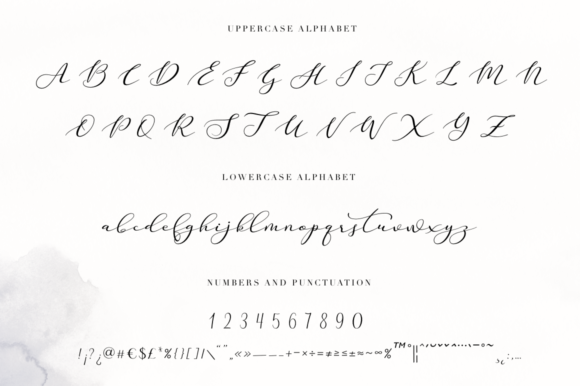 UPPERCASE ALPHABET
A B C D E F G H I J K L M N
O P Q R S T U V W X Y Z
LOWERCASE ALPHABET
abcdefghijklmnopqrstuvwxyz
NUMBERS AND PUNCTUATION
1 2 3 4 5 6 7 8 9 0
!¡?¿@#€$£*%(){}[]/\ “ ” „«»—–-+−×÷=≠≥≤±≈~∞%™°